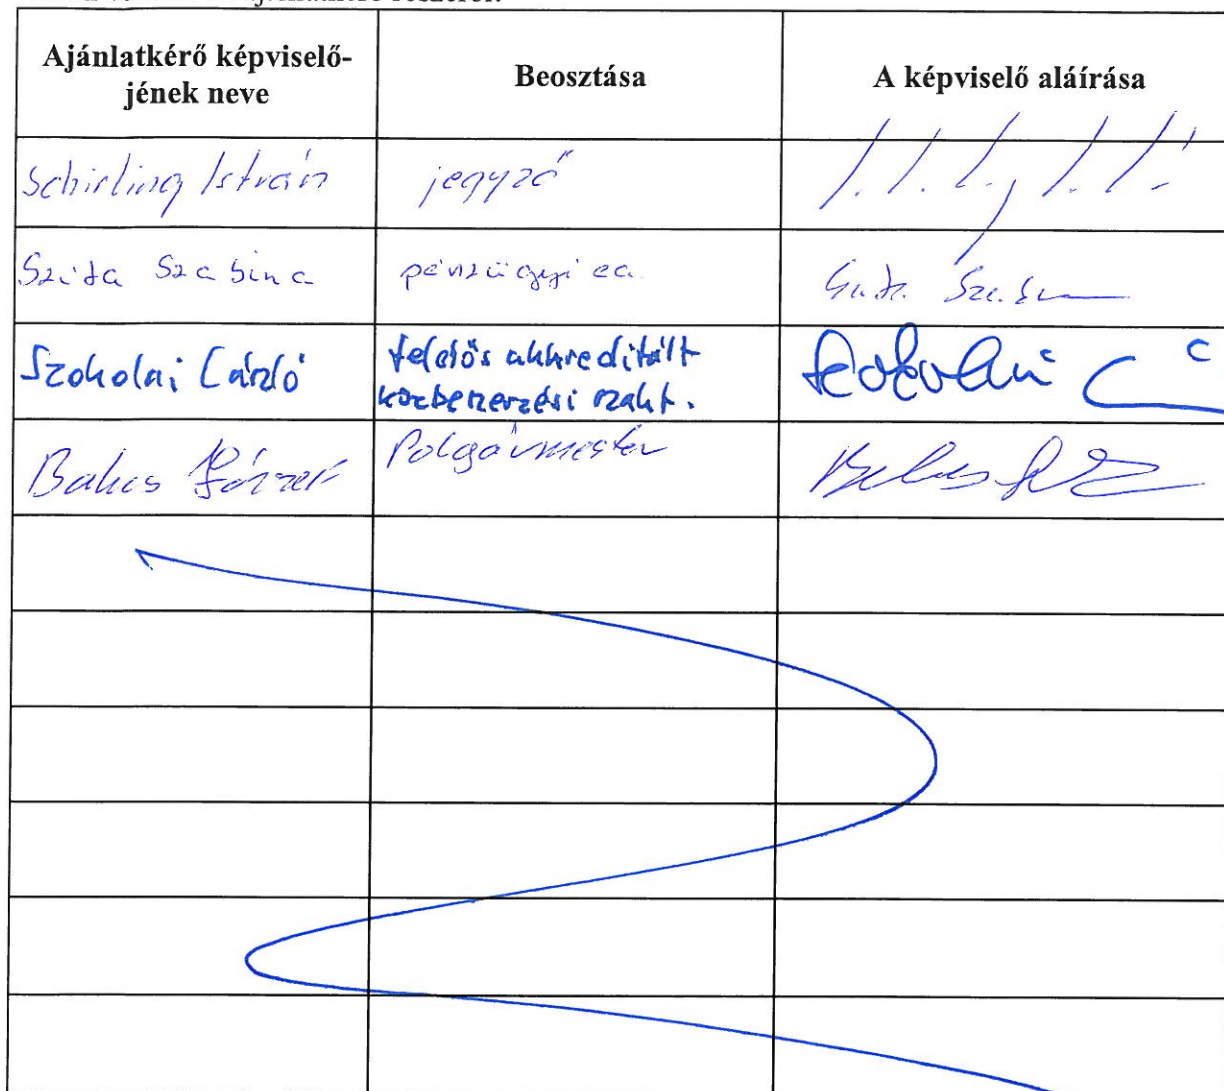 Ajánlatkérő képviselő-
jének neve
Beosztása
A képviselő aláírása
Schirling István
jegyző
Szita Szabina
pénzügyi ea.
Szokolai László
felelős akkreditált
közbeszerzési szakt.
Bakcs
Polgármester